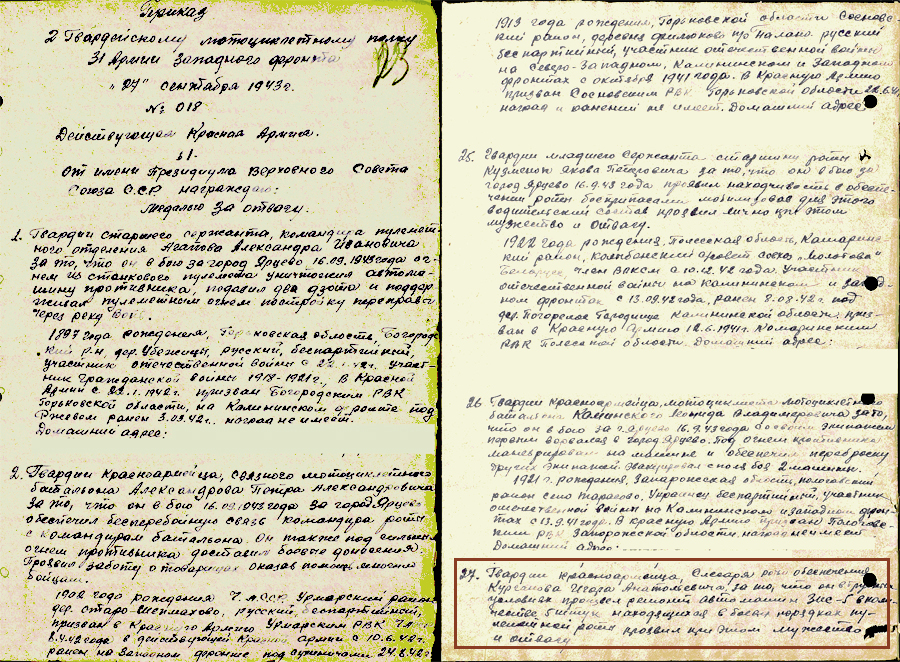 Приказ
2 Гвардейскому мотоциклетному полку
31 Армии Западного фронта
23
"27" сентября 1943г.
№ 018
Действующая Красная Армия.
§1.
От имени Президиума Верховного Совета
Союза С.С.Р награждаю:
Медалью За отвагу.
1. Гвардии старшего сержанта, командира пулемет-
ного отделения Агапова Александра Ивановича
за то, что он в бою за город Ярцево 16.09.1943года ог-
нем из станкового пулемета уничтожил автома-
шину противника, подавил два дзота и поддер-
живал пулеметным огнем постройку переправы
через реку
1897 года рождения, Горьковская область, Богород-
кий р-н, дер. русский, беспартийный,
участник отечественной войны с 22.1.42г. участ-
ник гражданской войны 1918-1921г., В Красной
Армии с 22.1.1942г. призван Богородским РВК
Горьковской области, на Калининском фронте под
Ржевом ранен 3.09.42г., наград не имеет.
Домашний адрес:
2. Гвардии Красноармейца, связного мотоциклетного
батальона Александрова Петра Александровича
за то, что он в бою 16.09.1943года за город Ярцево
обеспечил бесперебойную связь командира роты
с командирам батальона. Он также под сильным
огнем противника доставил боевые донесения.
Проявил заботу о товарищах оказав помощь
бойцам.
1902 года рождения Ч.АССР Урмарский район
дер. Старо-Шептахово, русский, беспартийный,
призван в Красную Армию Урмарским РВК
8.4.42года в действующей Красной армии с 10.6.42г.
ранен на Западном фронте под Сухиничами 24.8.42г
1913 года рождения, Горьковской области Соснов-
ский район, деревня русский
беспартийный, участник отечественной войны
на Северо-Западном, Калининском и Западном
фронтах с октября 1941 года. В Красную Армию
призван Сосновским РВК Горьковской области
наград и ранений не имеет. Домашний адрес
25. Гвардии младшего Сержанта старшину роты
Кузменок Якова Петровича за то, что он в бою за
город Ярцево 16.9.43 года проявил находчивость в обеспе-
чении роты боеприпасами мобилизовав для этого
водительский состав проявил лично при этом
мужество и отвагу.
1922 года рождения, Полесская область, Комарин-
ский район, сельсовет совхоз "Молотова"
Беларусс, член ВЛКСМ с 10.12.42 года. Участник
отечественной войны на Калининском и запад-
ном фронтах с 13.09.42года, ранен 8.08.42г. под
дер. Погорелое Городище Калининской области, приз-
ван в Красную Армию 12.6.1941г. Комаринским
РВК Полесской области. Домашний адрес:
26. Гвардии Красноармейца, мотоциклиста мотоциклетного
батальона Калинского Леонида Владимировича за то,
что он в бою за г.Ярцево 16.9.43года со своим экипажем
первым ворвался в город Ярцево. Под огнем противника
маневрировал на машине и обеспечил переброску
других экипажей. Эвакуировал с поля боя 2 машины.
1921 г. рождения, Запорожская область, Пологовский
район село Тарасово. Украинец беспартийный, участник
отечественной войны на Калининском и западном фрон-
тах с 13.9.41года. В красную Армию призван Пологов-
ским РВК Запорожской области, наград не имеет
Домашний адрес:
27. Гвардии красноармейца, Слесаря роты обеспечения
Курганова Игоря Анатольевича за то, что он в трудных
условиях произвел ремонт автомашин ЗИС-5 в коли-
честве 5 штук находящихся в боевых порядках пу-
леметной роты проявил при этом мужество
и отвагу